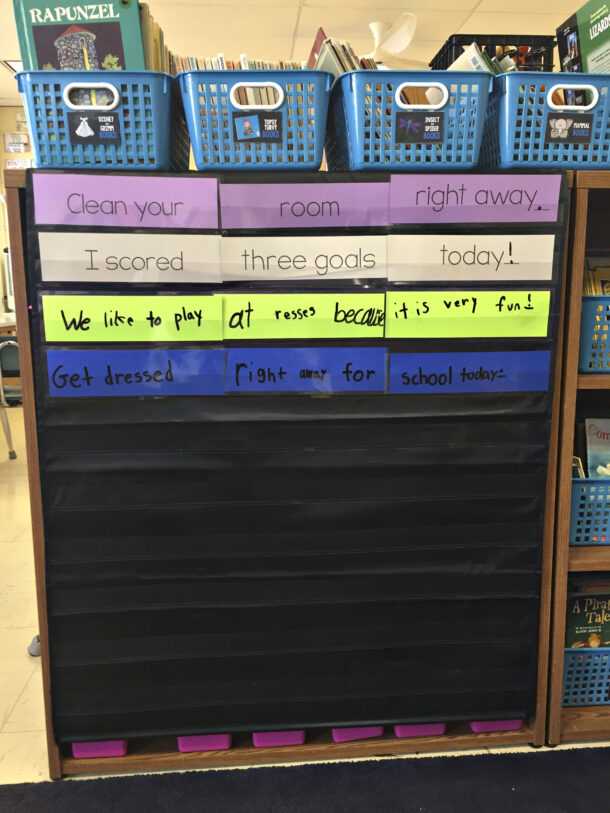 RAPUNZEL
LIZARDS
DISNEY
and GRIMM
BOOKS
TOPSY
TURVY
BOOKS
INSECT
and SPIDER
BOOKS
MAMMAL
BOOKS
Clean your room right away.
I scored three goals today!
We like to play at resses because it is very fun!
Get dressed right away for school today.
A Pirate
Tale